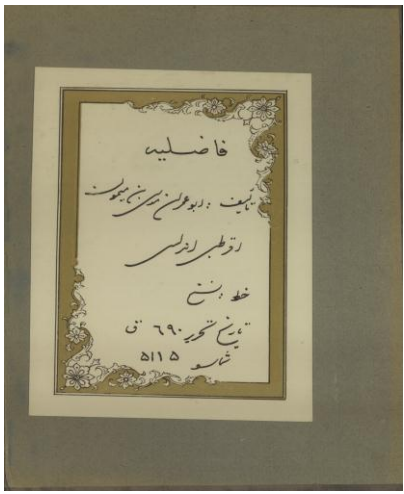 فاضلیه
تألیف : ابوعمران موسی بن میمون
قرطبی اندلسی
خط : نسخ
تاریخ تحریر ۶۹۰ ق
۵۱۱۵